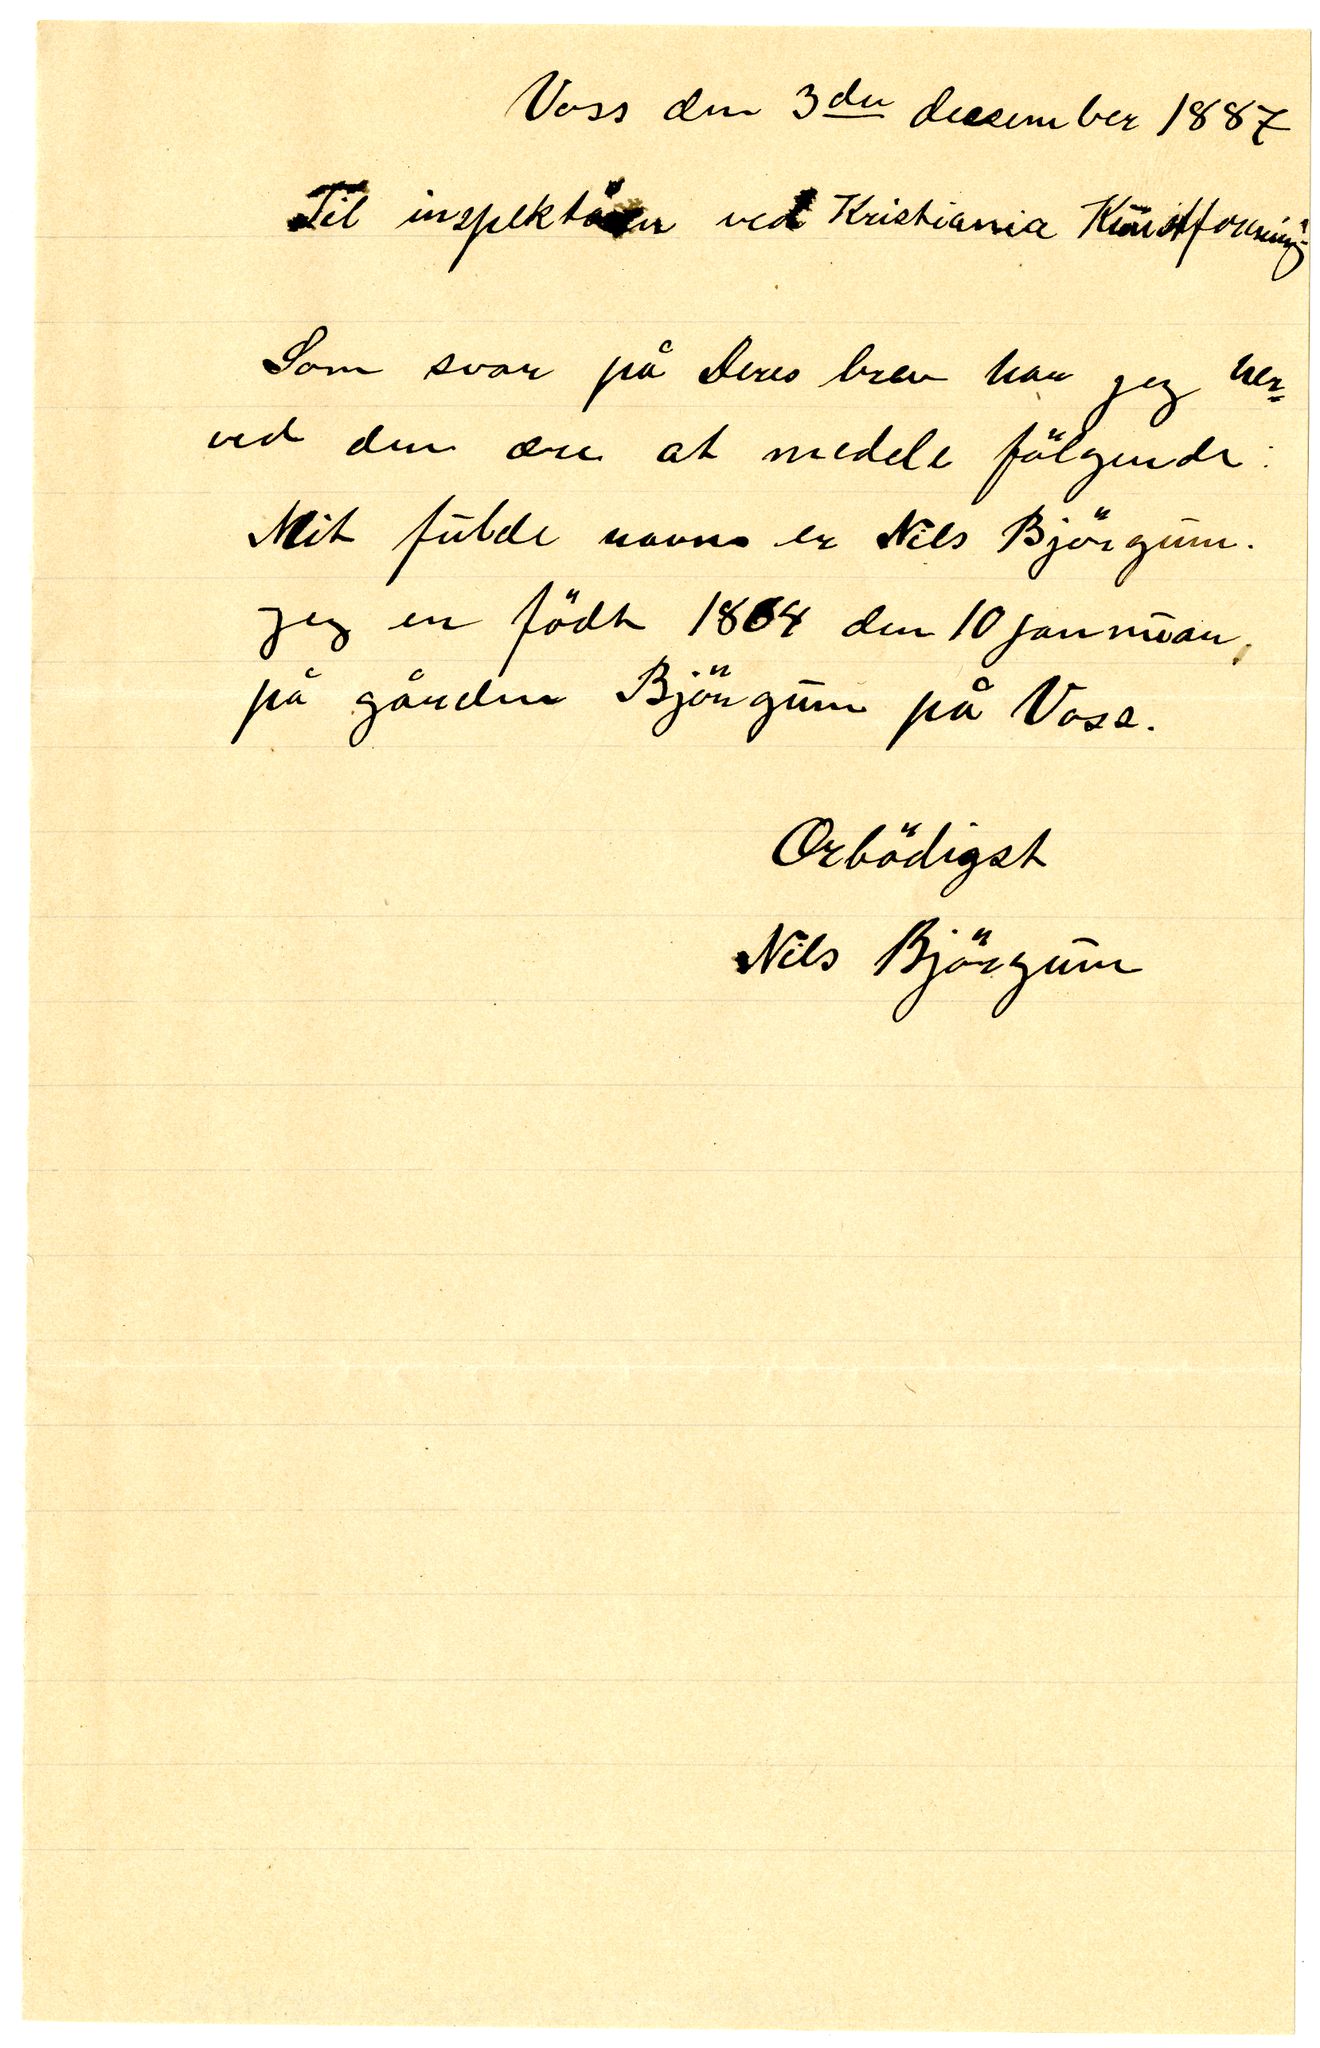 Voss den 3die desember 1887
Til inspektören ved Kristiania Kunstforening
Som svar på Deres brev har jeg her=
ved den ære at medele fölgende:
Mit fulde navn er Nils Björgum.
jeg er födt 1864 den 10 januuar,
på gården Björgum på Voss.
Örbödigst
Nils Björgum